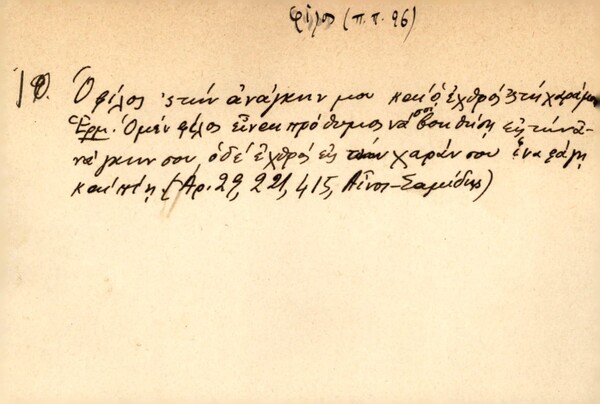 φίλος (π.π. 96)
Ὁ φίλος 'ς τὴν ἀνάγκην μου καὶ ὁ ἐχθρὸς 'ς τὴ χαρά μου
Ἑρμ. Ὁ μὲν φίλος εἶναι πρόθυμος νὰ σου βοηθήσῃ εἰς τὴν ἀ-
νάγκην σου, ὁ δὲ ἐχθρὸς εἰς τὴν χαράν σου ἵνα φάγῃ
καὶ πίῃ. (Ἀρ. 29, 221, 415, Αἶνος - Σαμίδης)